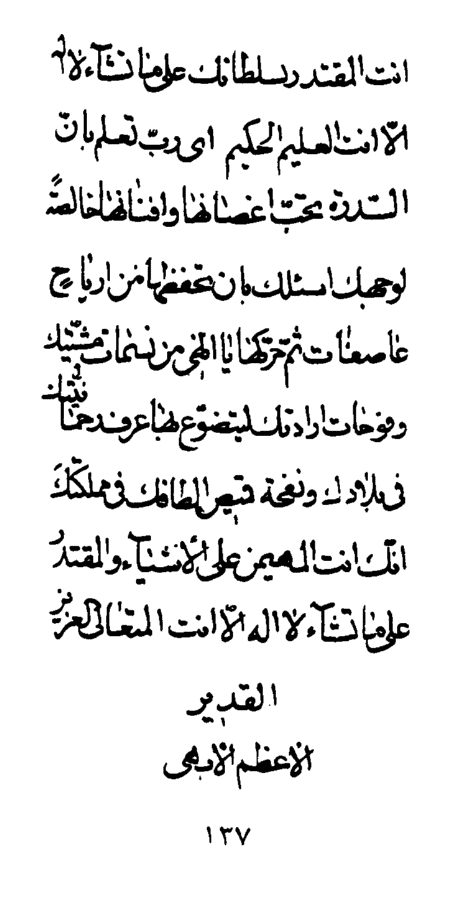 انت المقتدر بسلطانك على ما تشآء لا اله
الّا انت العليم الحكيم اى ربّ تعلم بانّ
السّدرة تحبّ اغصانها و افنانها خالصًة
لوجهك اسئلك بان تحفظها من ارياحٍ
عاصفات ثمّ حرّكها يا الهى من نسمات مشيّتك
و فوحات ارادتك ليتضوّع بها عرف رحمانيّتك
فى بلادك و نفحة قميص الطافك فى مملكتك
انّك انت المهيمن على الأشيآء و المقتدر
على ما تشآء لا اله الّا انت المتعالى العزيز
القدير
الاعظم الابهى
١٣٧